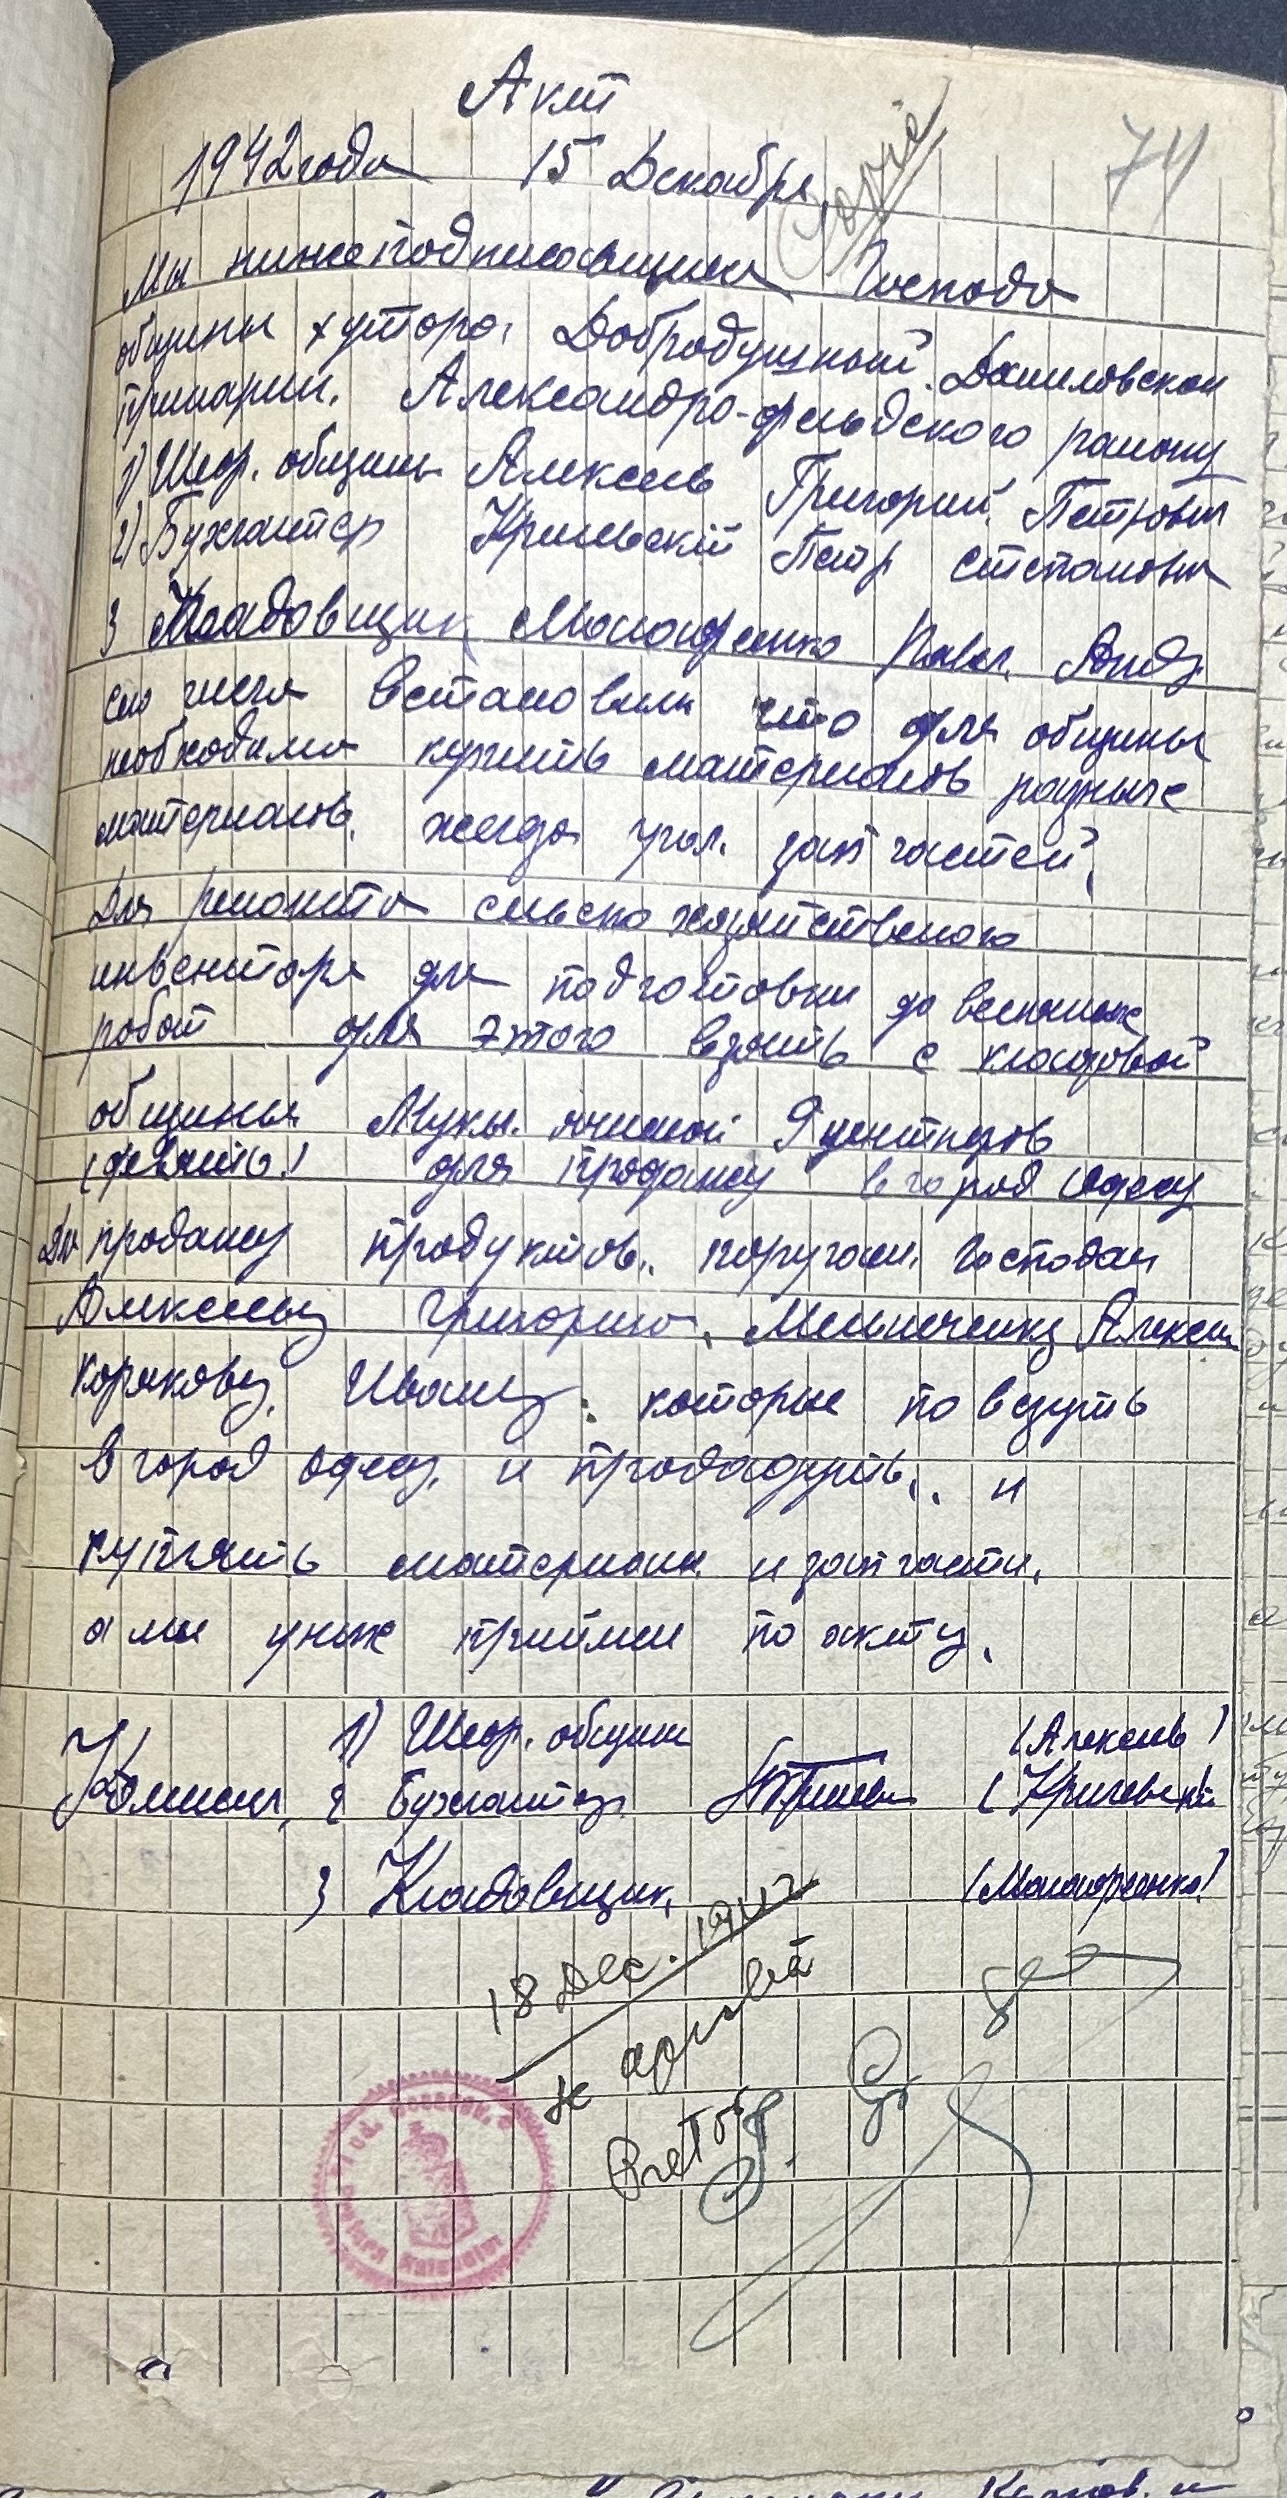 Акт
Copie
74
1942 года 15 Декабря
Мы нижеподписавшиеся Господа
общины хутора Добродушный Даниловской
примарии. Александро-фельдского району
1) Шеф. общины Алексеев Григорий Петрович
2) Бухгалтер Кричевский Петр Степанович
3 Кладовщик Мона Павел Анд
сего числа встановили что для общины
необходимо купить материалов разных
материалов. железа угол. запчастей,
Для ремонта сельскохозяйственого
инвентаря для подготовки до весняных
робот для этого взять с кладовой
общины Муки ячменой 9 центнеров
(девять) для продажу в город Одесу
Для продажу продуктов. поручаем Господам
Алексееву Григорию, Мельниченку Алексею
Корякову, Ивану. которые повезуть
в город Одесу. и продадуть. и
купять материалы и запчасти.
а мы у них приймем по акту.
1) Шеф. общины (Алексеев)
Комисия, 2 Бухгалтер (Кричевский)
3 Кладовщик,
18 Dec. 1942
se aprobă
Pretor